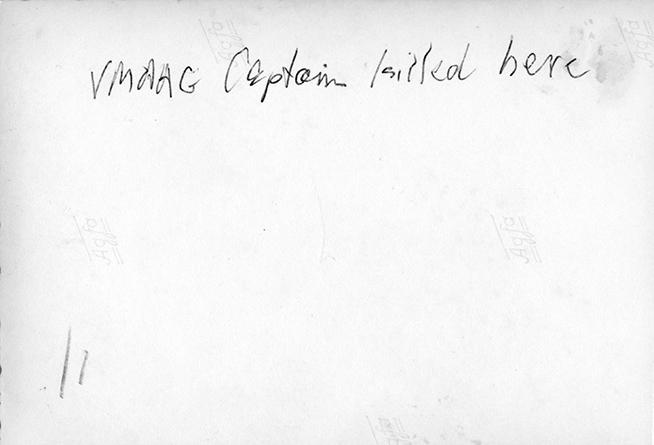 VMAAG Captain killed here
Agfa
Agfa
Agfa
Agfa
Agfa
//